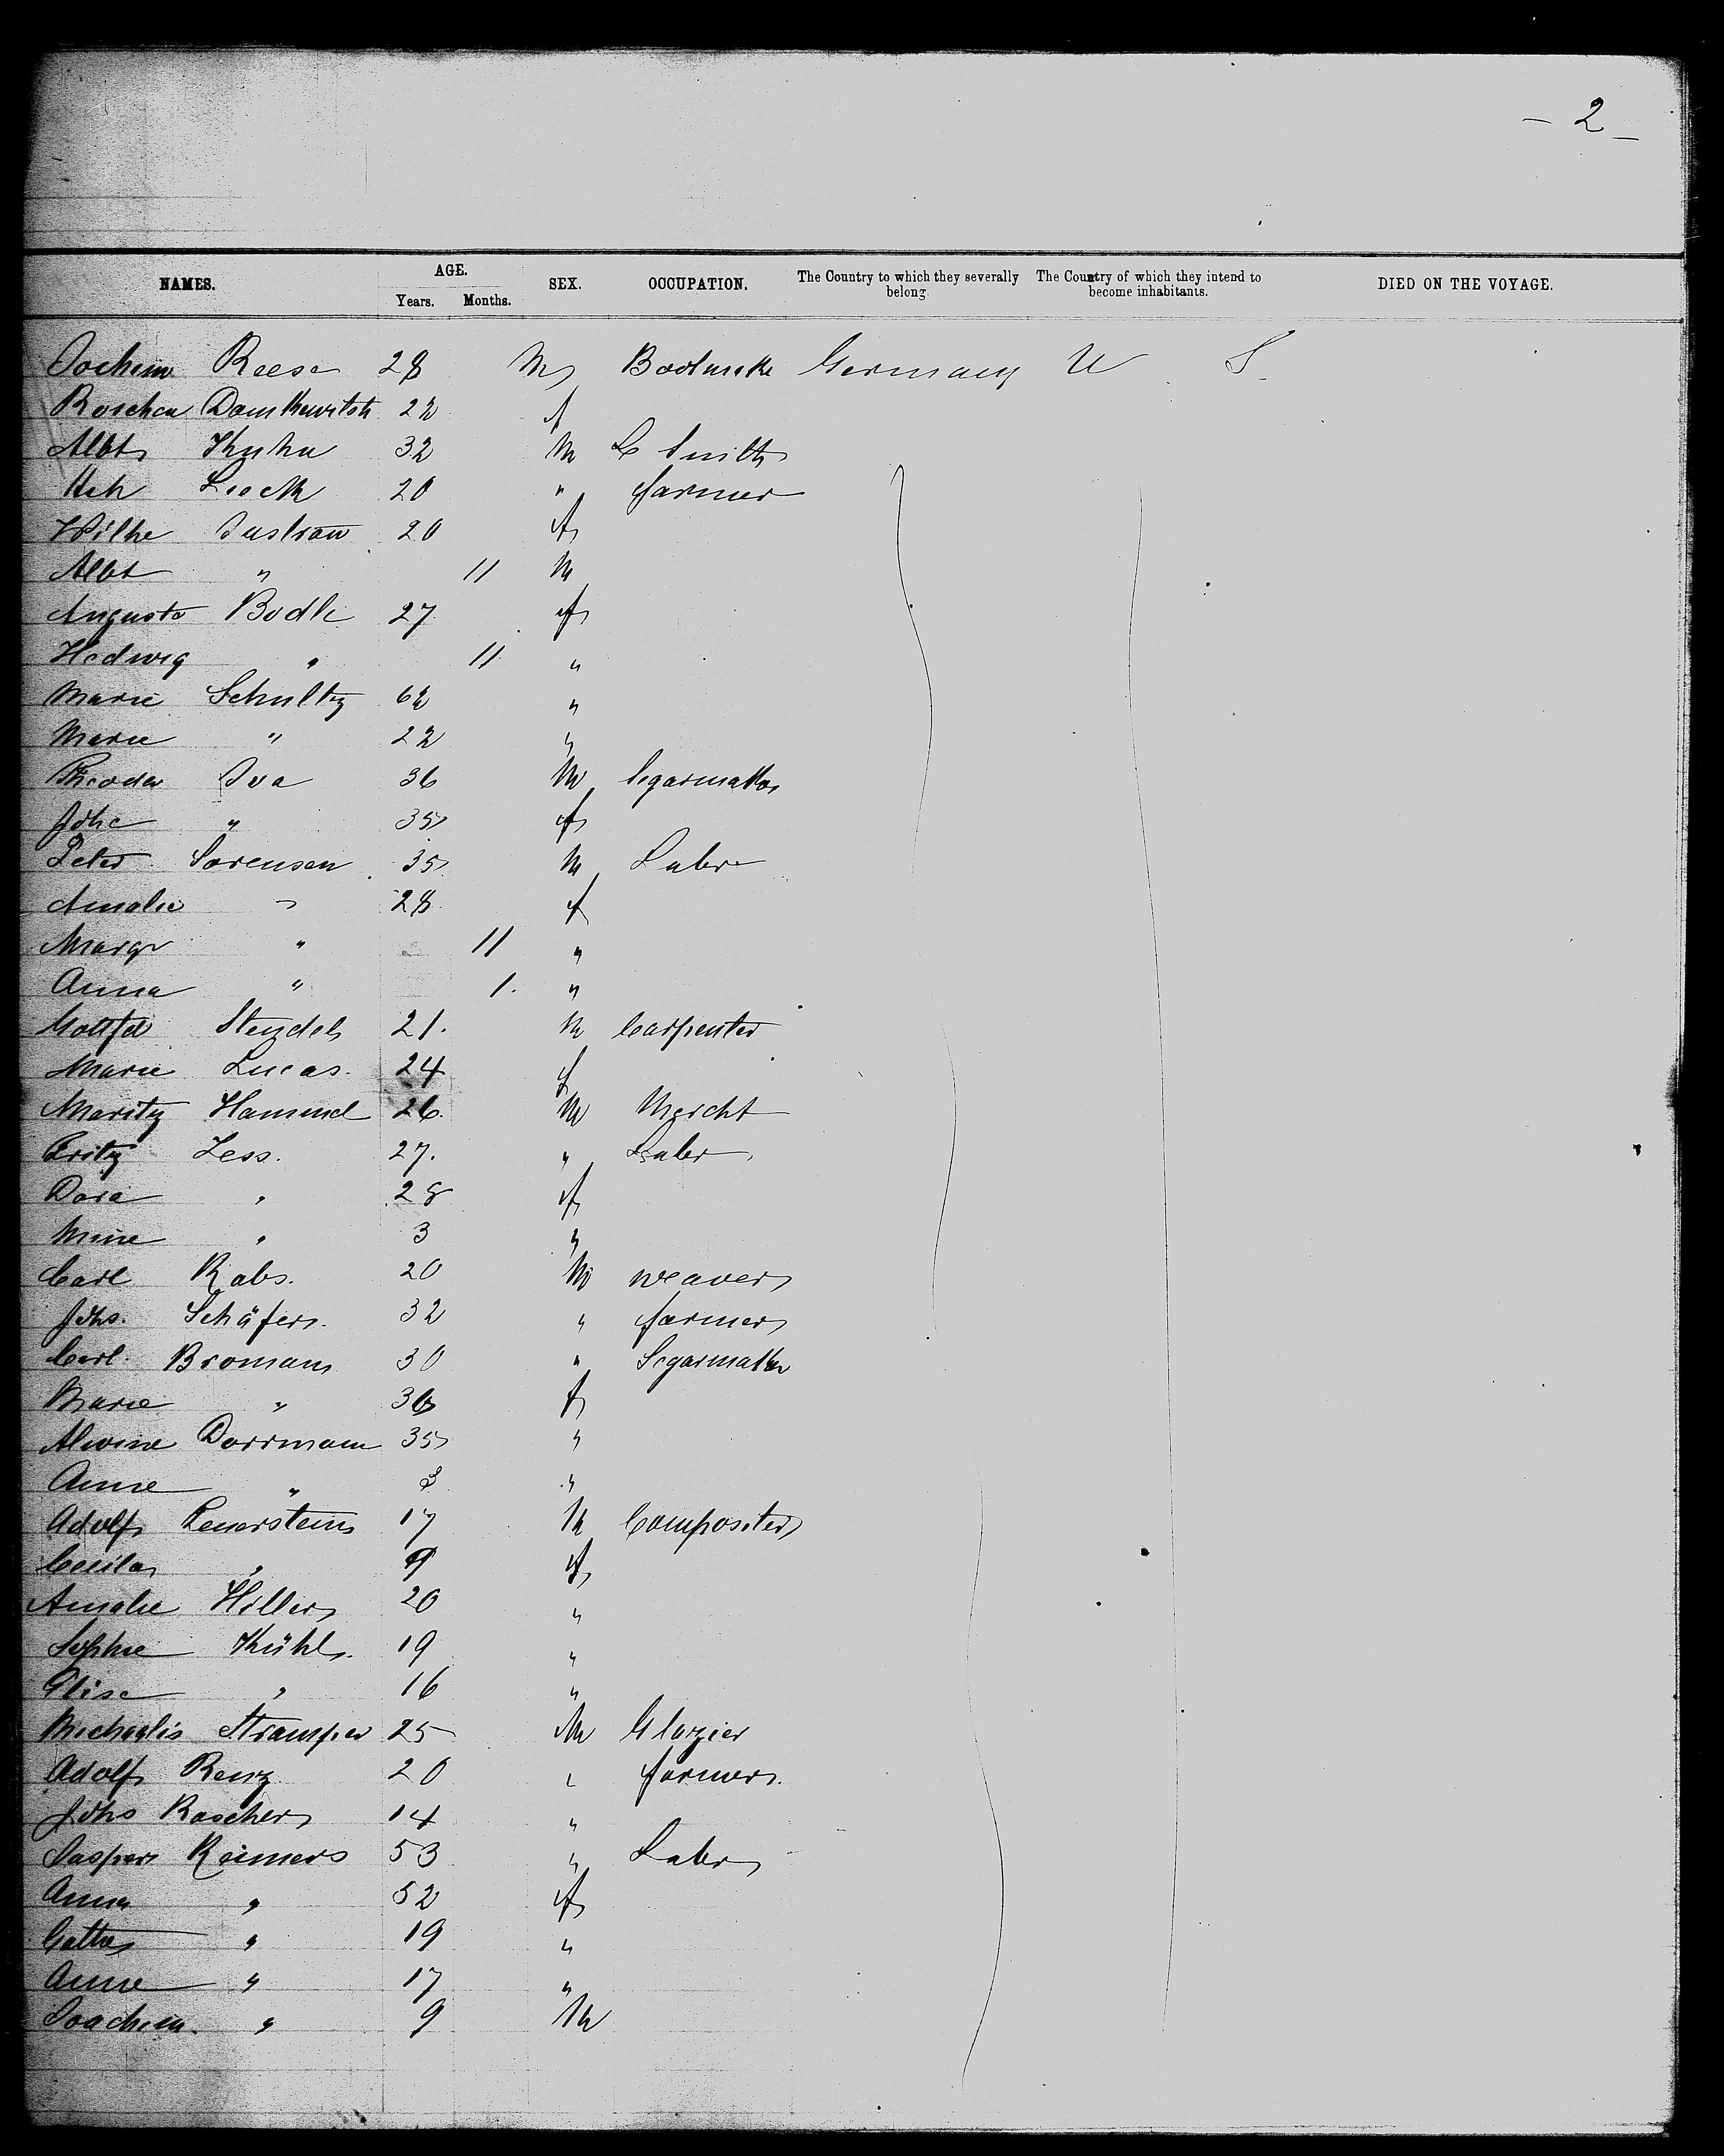 - 2 -
NAMES. AGE. Years. Months. SEX. OCCUPATION. The Country to which they severally belong. The Country of which they intend to become inhabitants. DIED ON THE VOYAGE.
Jochim Reese 28 M Bootmake Germany U S
Roschen 22 f
Albt Kuhn 32 M Smith
Hch Lock 20 " farmer
Wilhe Justrow 20 f
Albt " 11 M
Auguste Bodk 27 f
Hedwig " 11 "
Marie Schultz 62 "
Marie " 22 "
Theodor Iva 36 M Segarmaker
Johe " 35 f
Peter Sorensen 35 M Labr
Amalie " 28 f
Margr " 11 "
Anna " 1 "
Gottfd Stendel 21 M Carpenter
Marie Lucas 24 f
Moritz Hammel 26 M Mercht
Fritz Zess 27 " Labr
Dora " 28 f
Mine " 3 "
Carl Rabs 20 M weaver
Johs. Schäfer 32 " farmer
Carl Bromann 30 " Segarmaker
Marie " 36 f
Alwine Dorrmann 35 "
Anne " 3 "
Adolf 17 M Compositer
Cecilar " 9 f
Amalie Hiller 20 "
Sophie Kühl 19 "
Elise " 16 "
Michaelis Stramper 25 M Glazier
Adolf Renz 20 " farmer
Johs Rascher 14 "
Casper Reimers 53 " Labr
Anna " 52 f
Cathr " 19 "
Anne " 17 "
Joachim " 9 M